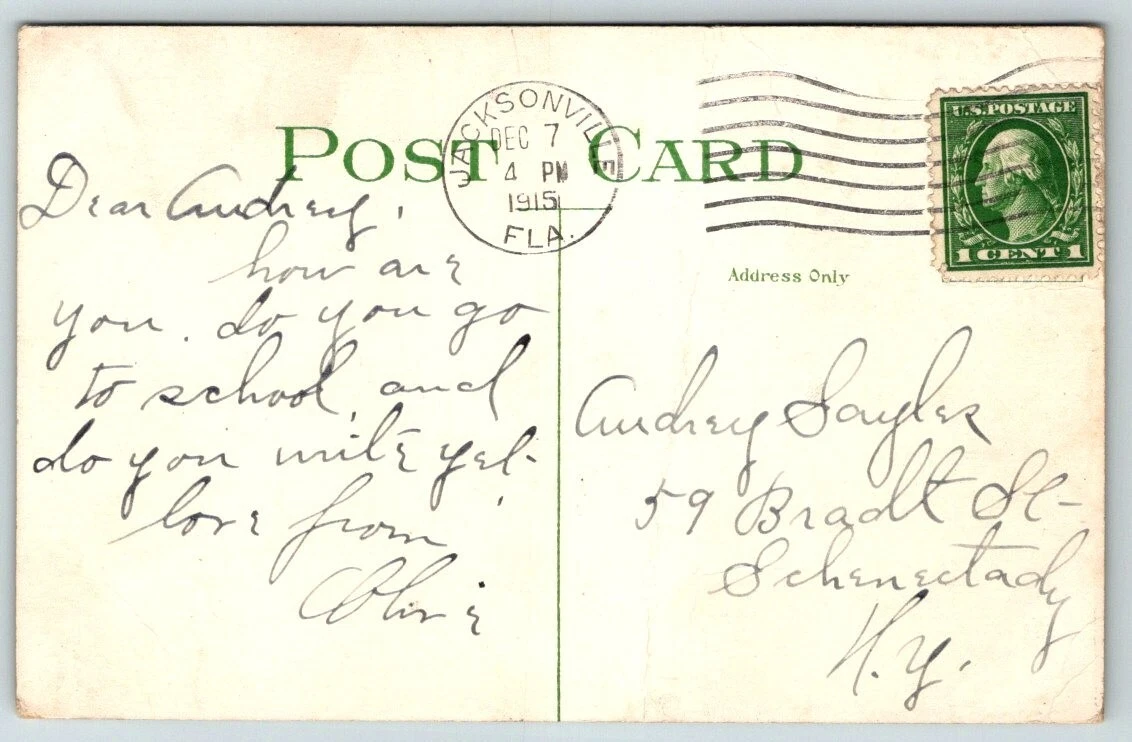 POST CARD
JACKSONVILLE
DEC 7
4 PM
1915
FLA.
U.S. POSTAGE
1 CENT 1
Address Only
Dear Audrey,
how are
you. do you go
to school, and
do you write yet.
love from
Olive
Audrey Sayles
59 Bradt St-
Schenectady
N.Y.